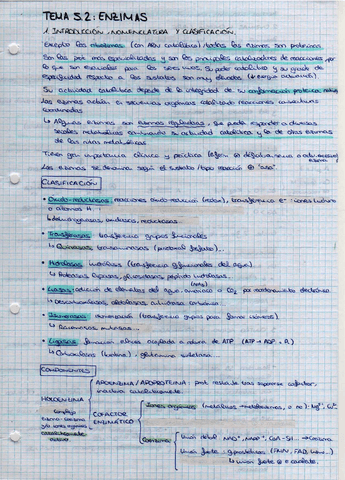 TEMA 5.2: ENZIMAS
1. INTRODUCCIÓN, NOMENCLATURA Y CLASIFICACIÓN.
Excepto las ribozimas (con ARN catalítico) todas las enzimas son proteínas
Son las prot más especializadas y son los principales catalizadores de reacciones, por
lo que son esenciales para los seres vivos. Su poder catalítico y su grado de
especificidad respecto a los sustratos son muy elevados
Su actividad catalítica depende de la integridad de su conformación proteica nativa
Las enzimas actúan en secuencias organizadas catalizando reacciones consecutivas
coordinadas
↳ Algunas enzimas son enzimas reguladoras, que pueden responder a diversas
señales metabólicas cambiando su actividad catalítica y la de otras enzimas
de las rutas metabólicas
Tienen gran importancia clínica y práctica
Las enzimas se denominan según el sustrato/tipo reacción ⊕ "asa"
CLASIFICACIÓN
• Óxido-reductasas: reacciones óxido-reducción (redox), transferencia e⁻: iones hidruro
o átomos H.
↳ deshidrogenasas, oxidasas, reductasas...
• Transferasas: transferencia grupos funcionales
↳ Quinasas, transaminasas
• Hidrolasas: hidrólisis (transferencia g.funcionales del agua)
↳ Proteasas, lipasas, glucosidasas, péptido hidrolasas...
• Liasas: adición de elementos del agua, amoníaco o CO₂
↳ Descarboxilasas, aldolasas, anhidrasa carbónica.
• Isomerasas: isomerización (transferencia grupos para formar isómeros)
↳ Racemasas, mutasas...
• Ligasas: formación enlaces acoplada a rotura de ATP (ATP → ADP + Pi)
↳ Carboxilasas (biotina), glutamina sintetasa...
COMPONENTES
HOLOENZIMA
Complejo
catalíticamente
activo
APOENZIMA/APOPROTEÍNA: prot. residual tras separarse cofactor,
inactiva catalíticamente.
COFACTOR
ENZIMÁTICO
Iones inorgánicos (metálicos → metaloenzimas, o no): Mg²⁺
Coenzima
Unión débil: NAD⁺, NADP⁺, CoA-SH...
Unión fuerte: g.prostéticos (FMN, FAD, Hemo...)
↳ Unión fuerte ⊕ o covalente.